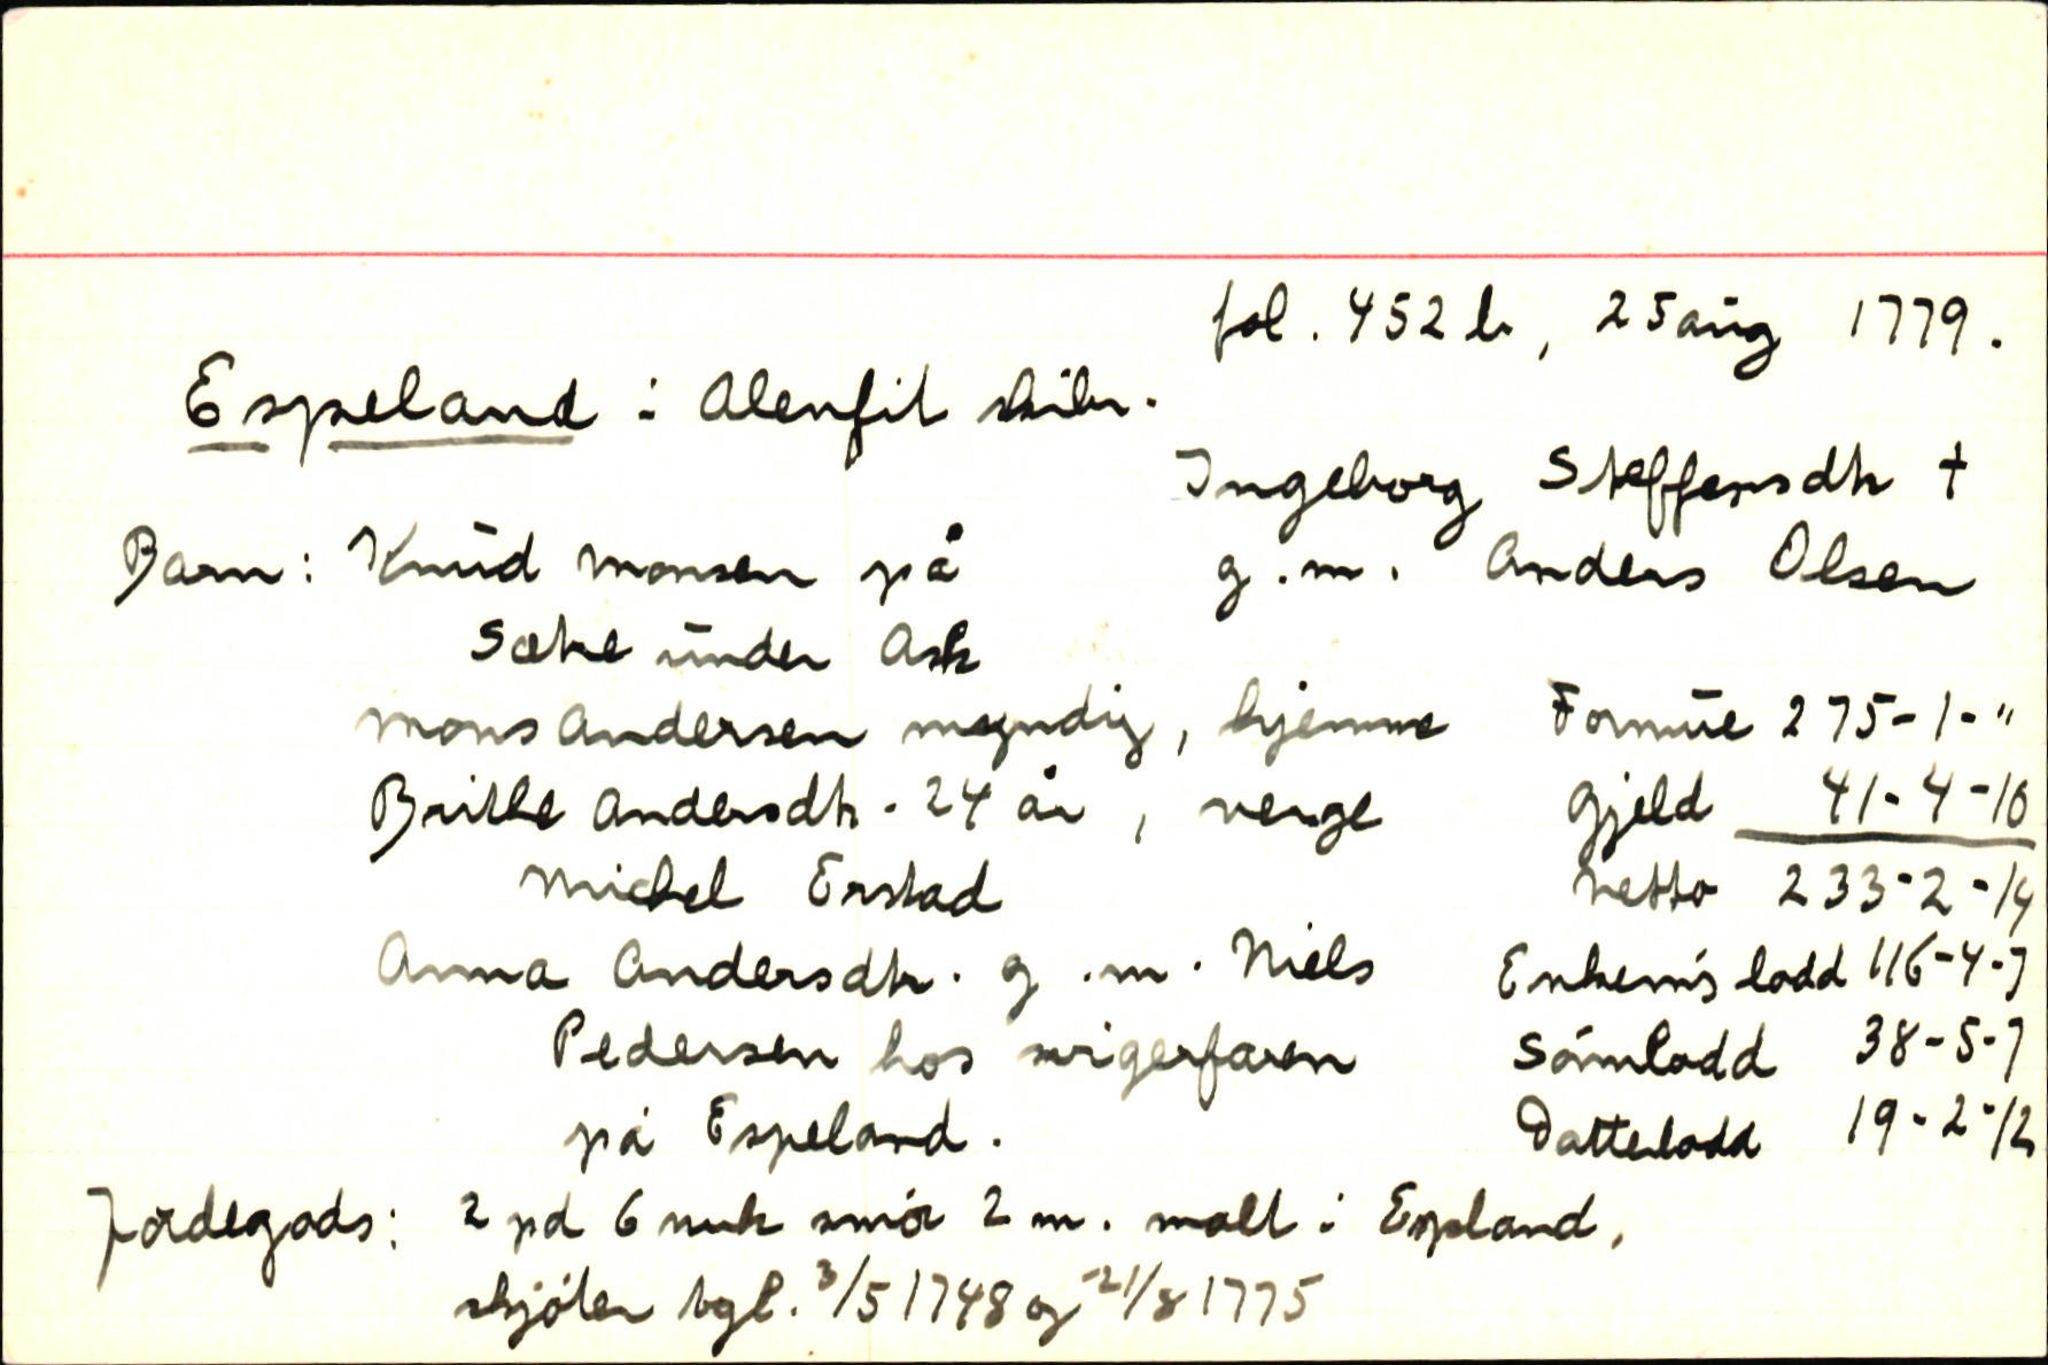 fol. 452 b, 25 aug 1779.
Espeland i Alenfit skibr.
Ingeborg Steffensdtr †
g.m. Anders Olsen
Barn: Knud Monsen på
Sætre under Ask
Mons Andersen myndig, hjemme
Brithe Andersdtr. 24 år, verge
Michel Erstad
Anna Andersdtr. g.m. Niels
Pedersen hos svigerfaren
på Espeland.
Formue 275-1-"
Gjeld 41-4-10
Netto 233-2-14
Enkem's lodd 116-4-7
Sønnlodd 38-5-7
Datterlodd 19-2-12
Jordegods: 2 pd 6 mrk smør 2 m. malt i Espland,
skjøter tgl. 3/5 1748 og 21/8 1775